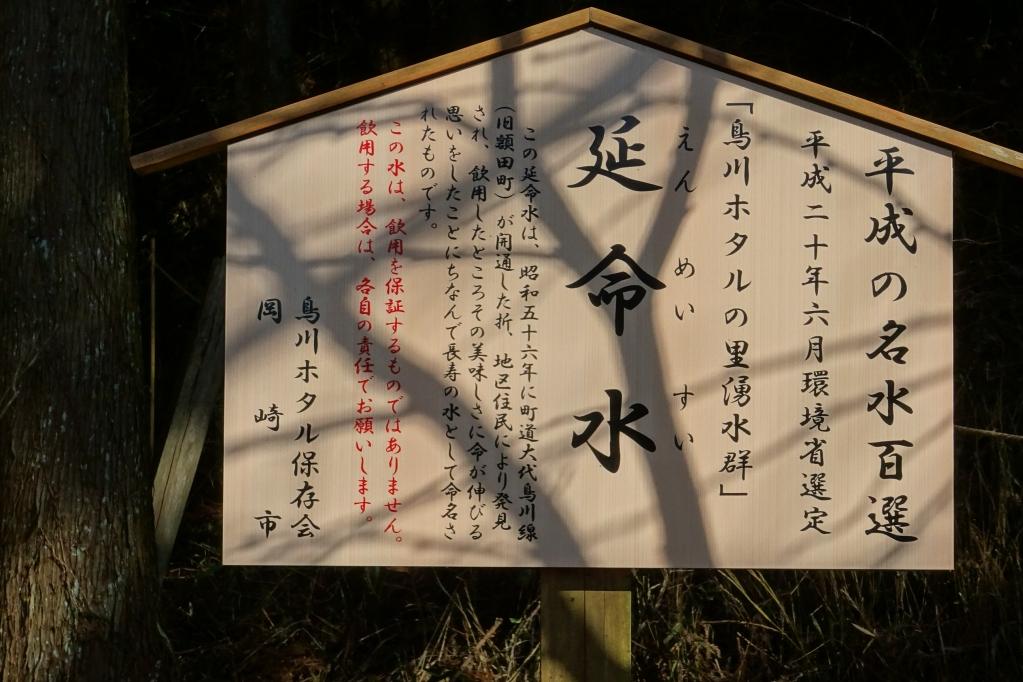 平成の名水百選
平成二十年六月環境省選定
「鳥川ホタルの里湧水群」
えん めい すい
延命水
この延命水は、昭和五十六年に町道大代鳥川線
(旧額田町)が開通した折、地区住民により発見
され、飲用したところその美味しさに命が伸びる
思いをしたことにちなんで長寿の水として命名さ
れたものです。
この水は、飲用を保証するものではありません。
飲用する場合は、各自の責任でお願いします。
鳥川ホタル保存会
岡崎市